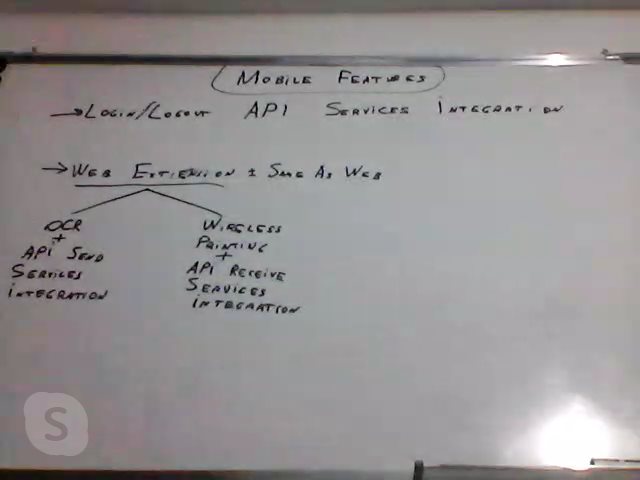 MOBILE FEATURES
→LOGIN/LOGOUT API SERVICES INTEGRATION
→WEB EXTENSION ± SAME AS WEB
OCR
+
API SEND
SERVICES
INTEGRATION
WIRELESS
PRINTING
+
API RECEIVE
SERVICES
INTEGRATION
S